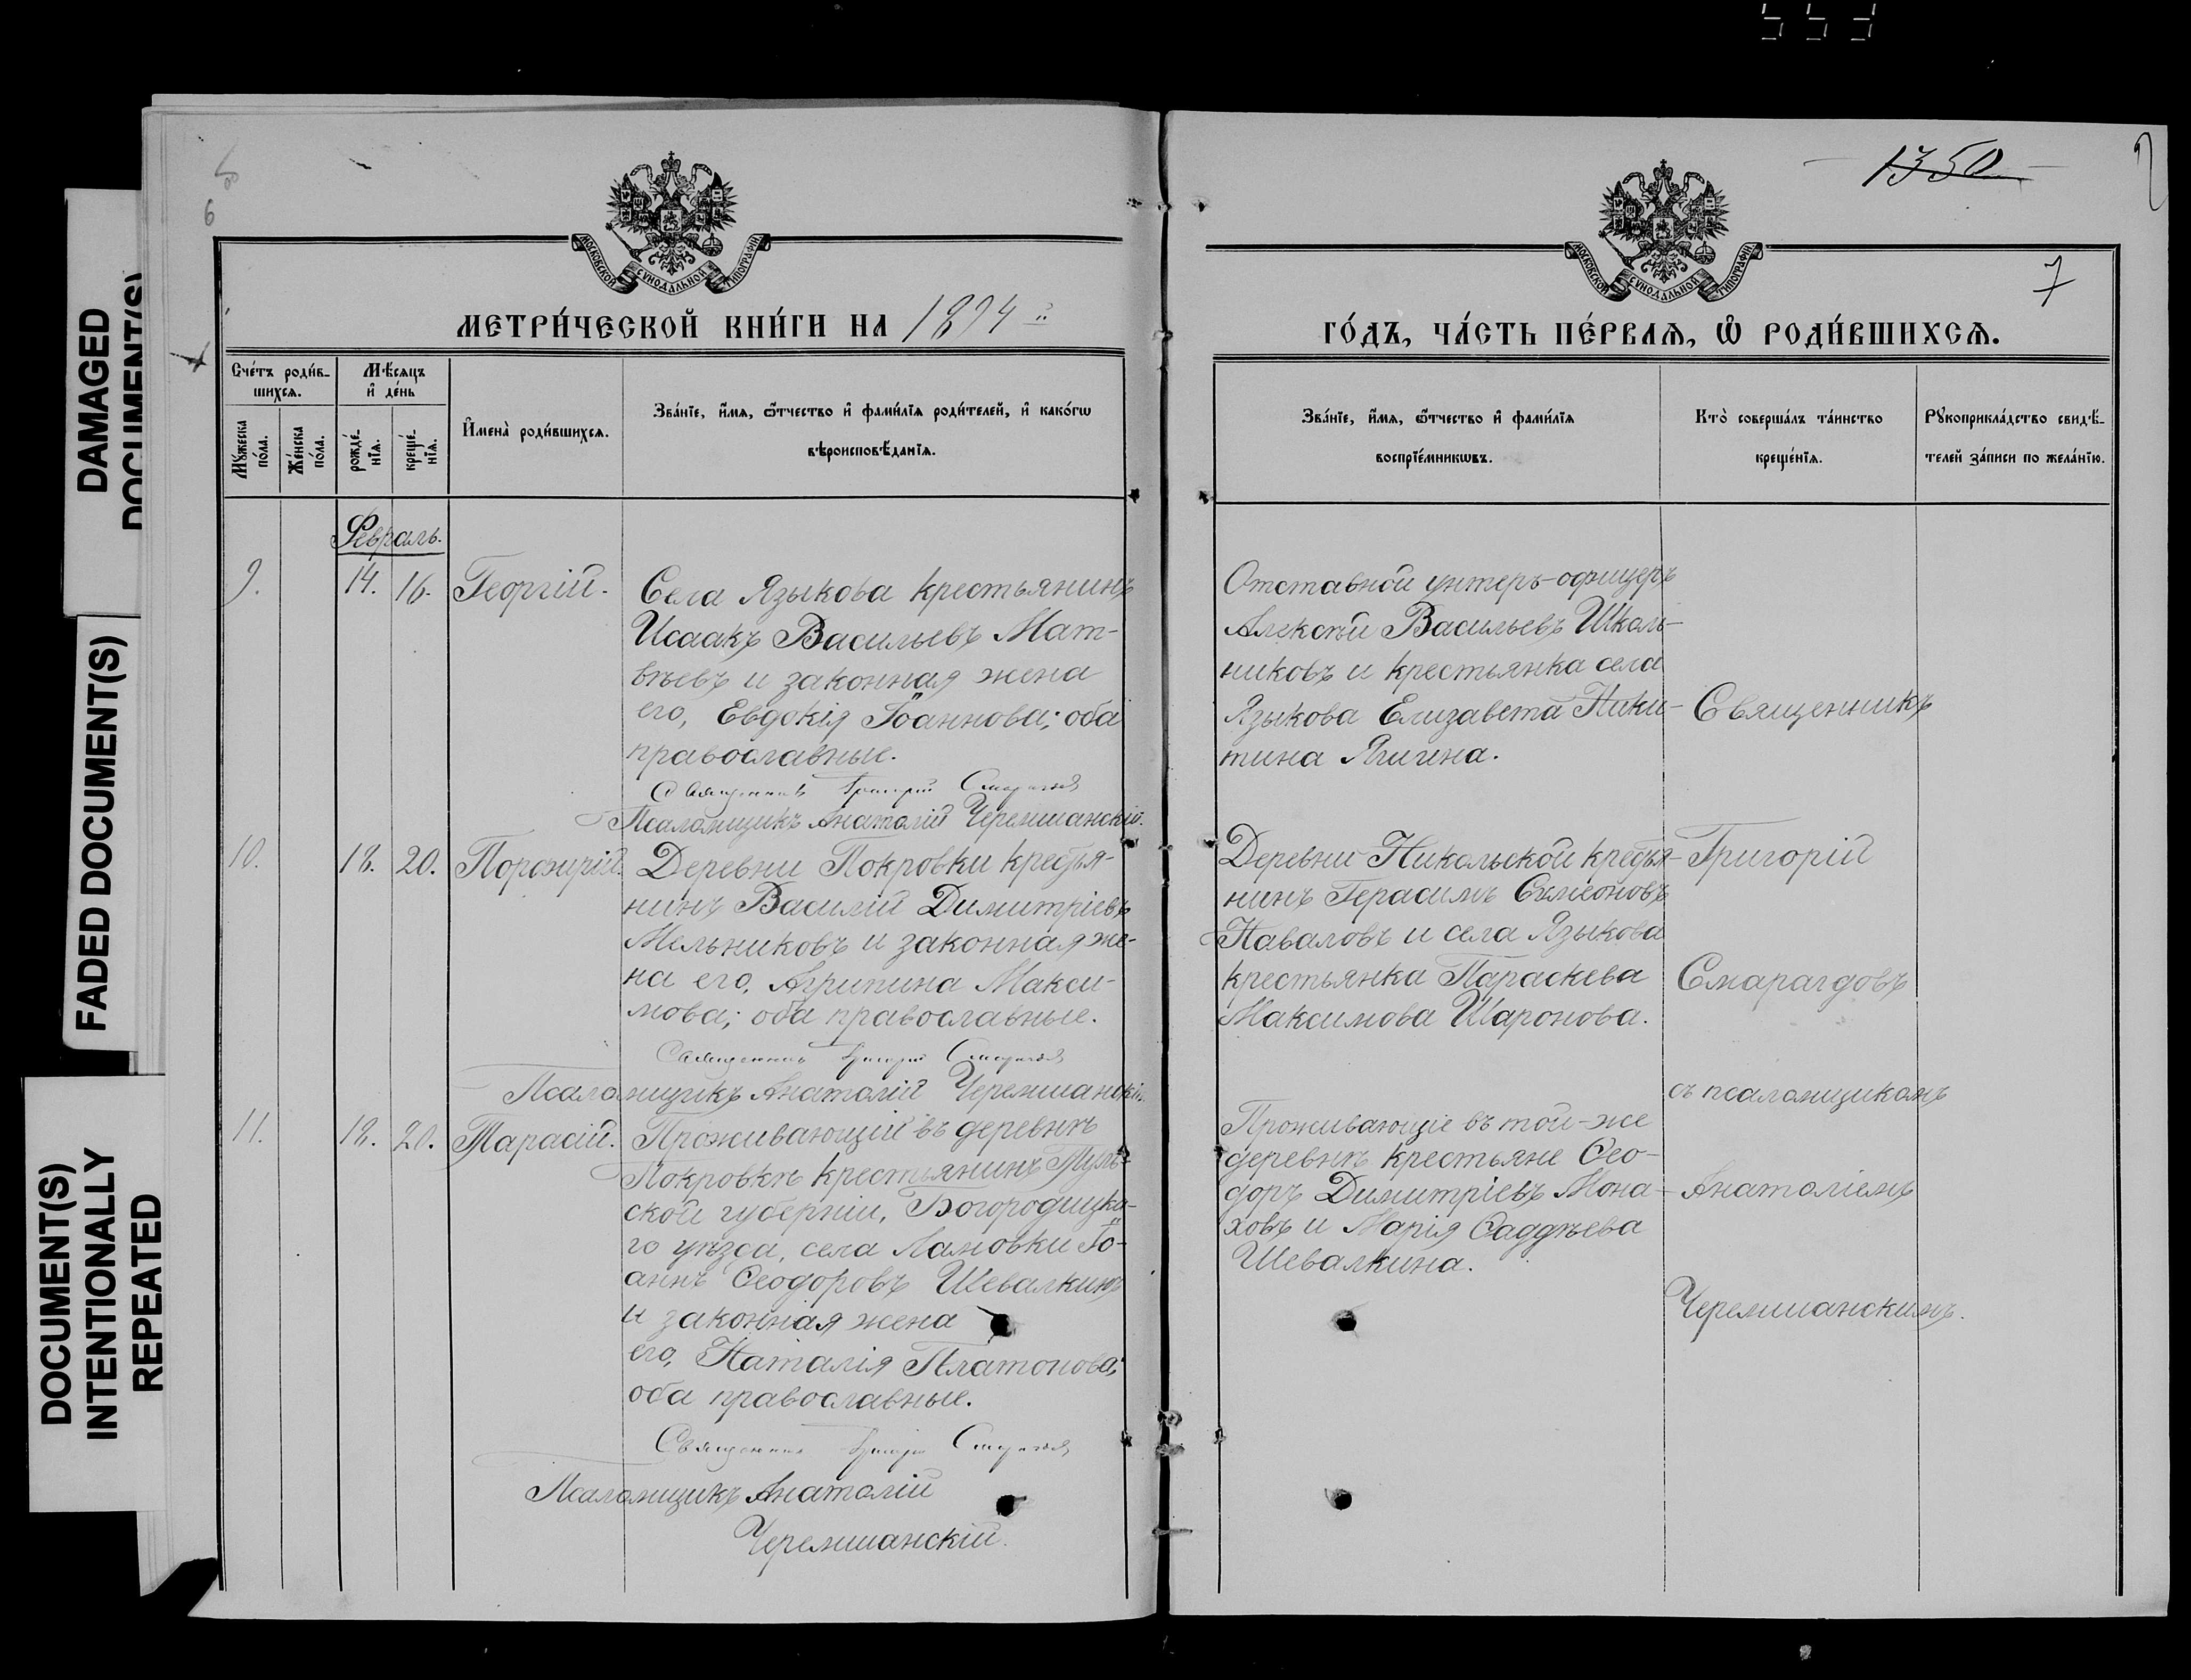 553
DAMAGED
DOCUMENT(S)
FADED DOCUMENT(S)
DOCUMENT(S)
INTENTIONALLY
REPEATED
6
МОСКОВСКОЙ СѴНОДАЛЬНОЙ ТИПОГРАФІИ
МЕТРИ́ЧЕСКОЙ КНИ́ГИ НА 1894
Сче́тъ роди́в-
шихсѧ.
Мѣ́сяцъ
и҆ де́нь
Мꙋ́жеска
по́ла.
Же́нска
по́ла.
рожде́-
нїѧ.
креще́-
нїѧ.
И҆мена̀ роди́вшихсѧ.
Зва́нїе, и҆́мѧ, ѻ҆́тчество и҆ фами́лїѧ роди́телей, и҆ како́гѡ
вѣроисповѣ́данїѧ.
Февраль.
9. 14. 16. Георгій.
Села Языкова крестьянинъ
Исаакъ Васильевъ Мат-
вѣевъ и законная жена
его, Евдокія Іоаннова; оба
православные.
Священникъ Григорій Смарагдовъ
Псаломщикъ Анатолій Черемшанскій.
10. 18. 20. Порфирій.
Деревни Покровки кресть-
нинъ Василій Димитріевъ
Мельниковъ и законная же-
на его, Агрипина Макси-
мова; оба православные.
Священникъ Григорій Смарагдовъ
Псаломщикъ Анатолій Черемшанскій.
11. 18. 20. Тарасій.
Проживающій въ деревнѣ
Покровкѣ крестьянинъ Туль-
ской губерніи, Богородицка-
го уѣзда, села Лановки Іо-
аннъ Ѳеодоровъ Шевалкинъ
и законная жена
его, Наталія Платонова;
оба православные.
Священникъ Григорій Смарагдовъ
Псаломщикъ Анатолій
Черемшанскій.
1350
7
МОСКОВСКОЙ СѴНОДАЛЬНОЙ ТИПОГРАФІИ
ГО́ДЪ, ЧА́СТЬ ПЕ́РВАѦ, Ѡ҆ РОДИ́ВШИХСѦ.
Зва́нїе, и҆́мѧ, ѻ҆́тчество и҆ фами́лїѧ
воспрїе́мникѡвъ.
Кто̀ соверша́лъ та́инство
креще́нїѧ.
Рꙋкоприкла́дство свидѣ́-
телей за́писи по жела́нїю.
Отставной унтеръ-офицеръ
Алексѣй Васильевъ Школь-
никовъ и крестьянка села
Языкова Елизавета Ники-
тина Ягигина.
Деревни Никольской крестья-
нинъ Герасимъ Сѵмеоновъ
Наваловъ и села Языкова
крестьянка Параскева
Максимова Шаронова.
Проживающіе въ той-же
деревнѣ крестьяне Ѳео-
доръ Димитріевъ Мона-
ховъ и Марія Ѳаддѣева
Шевалкина.
Священникъ
Григорій
Смарагдовъ
съ псаломщикомъ
Анатоліемъ
Черемшанскимъ.